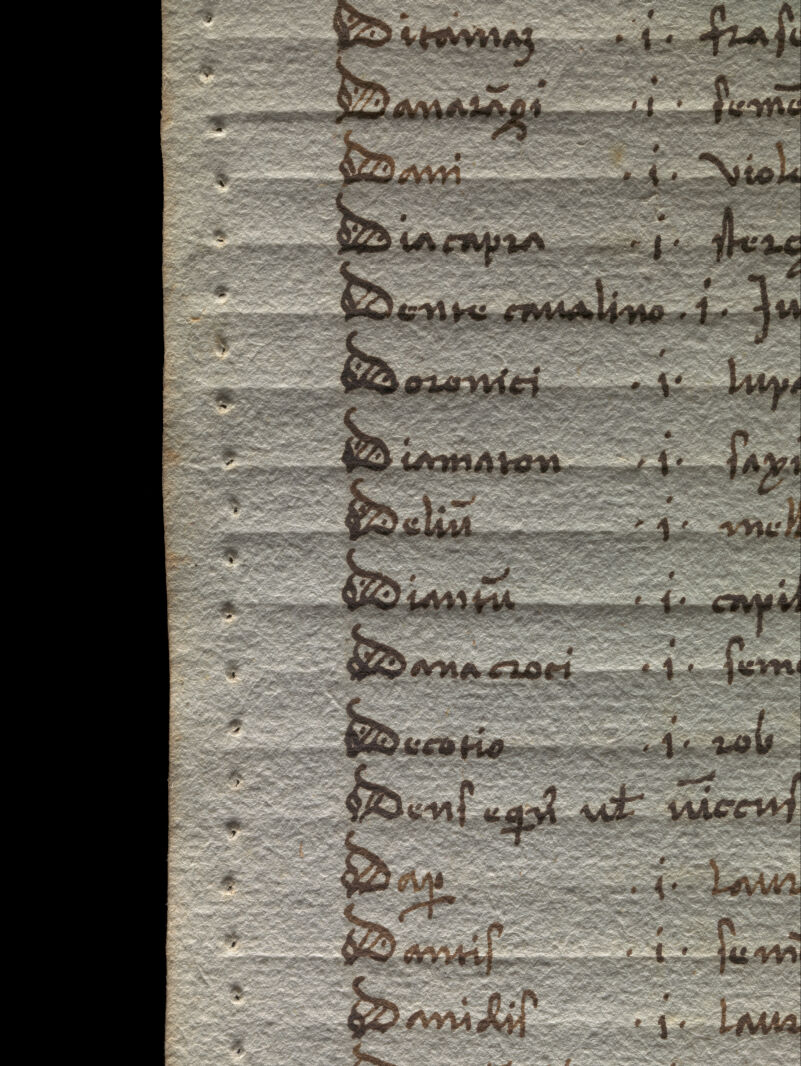 Ditamaz · i · frase
Danarāgi · i · semē
Dani · i · viole
Diacapra · i · sterc
Dente caualino · i · Ju
Doronici · i · lupa
Diamaron · i · sapi
Deliū · i · mell
Diantū · i · capil
Danacroci · i · seme
Decotio · i · rob
Dens equi vł
Dap · i · Laur
Dantis · i · sem
Danidis · i · laur